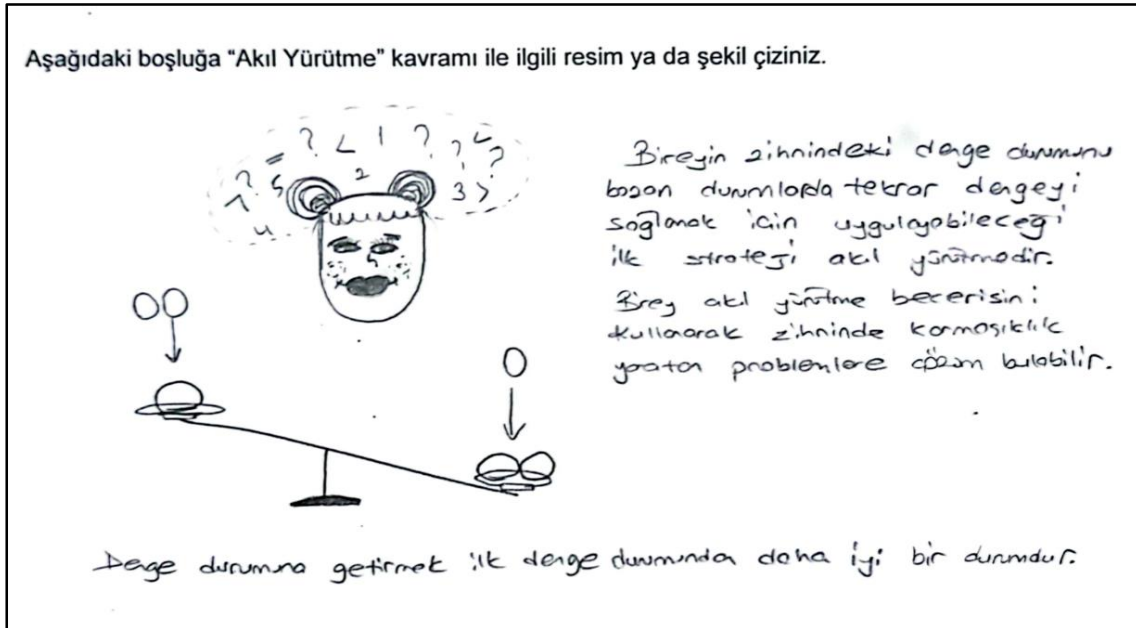 Aşağıdaki boşluğa “Akıl Yürütme” kavramı ile ilgili resim ya da şekil çiziniz.
? < 1 ? ? < ?
= 5 2 3 >
? 7 4
Bireyin zihnindeki denge durumunu
bozan durumlarda tekrar dengeyi
sağlamak için uygulayabileceği
ilk strateji akıl yürütmedir.
Birey akıl yürütme becerisini
kullanarak zihninde karmaşıklık
yaratan problemlere çözüm bulabilir.
Denge durumuna getirmek ilk denge durumundan daha iyi bir durumdur.